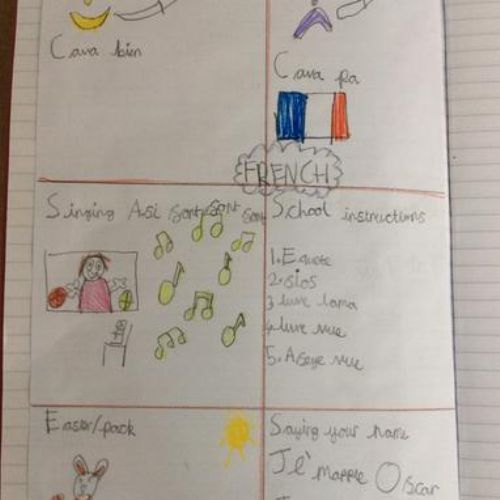 Cava bien
Cava pa
FRENCH
Singing Asi sont sont sont
School instructions
1. Ecoute
2. silos
3 luve lama
4. luve vue
5. Aseye vue
Easter/pack
Saying your name
Je' mapple Oscar